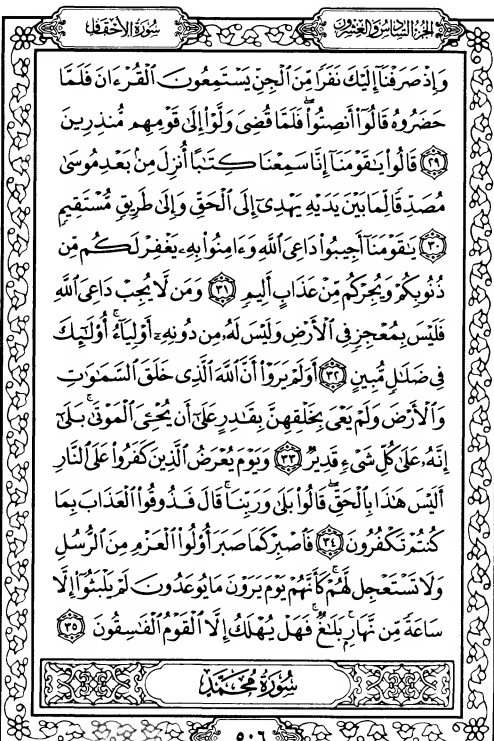 الجزء السادس والعشرون
سورة الأحقاف
وَإِذْ صَرَفْنَآ إِلَيْكَ نَفَرًا مِّنَ ٱلْجِنِّ يَسْتَمِعُونَ ٱلْقُرْءَانَ فَلَمَّا
حَضَرُوهُ قَالُوٓا۟ أَنصِتُوا۟ ۖ فَلَمَّا قُضِىَ وَلَّوْا۟ إِلَىٰ قَوْمِهِم مُّنذِرِينَ
﴿٢٩﴾ قَالُوا۟ يَٰقَوْمَنَآ إِنَّا سَمِعْنَا كِتَٰبًا أُنزِلَ مِنۢ بَعْدِ مُوسَىٰ
مُصَدِّقًا لِّمَا بَيْنَ يَدَيْهِ يَهْدِىٓ إِلَى ٱلْحَقِّ وَإِلَىٰ طَرِيقٍ مُّسْتَقِيمٍ
﴿٣٠﴾ يَٰقَوْمَنَآ أَجِيبُوا۟ دَاعِىَ ٱللَّهِ وَءَامِنُوا۟ بِهِۦ يَغْفِرْ لَكُم مِّن
ذُنُوبِكُمْ وَيُجِرْكُم مِّنْ عَذَابٍ أَلِيمٍ ﴿٣١﴾ وَمَن لَّا يُجِبْ دَاعِىَ ٱللَّهِ
فَلَيْسَ بِمُعْجِزٍ فِى ٱلْأَرْضِ وَلَيْسَ لَهُۥ مِن دُونِهِۦٓ أَوْلِيَآءُ ۚ أُو۟لَٰٓئِكَ
فِى ضَلَٰلٍ مُّبِينٍ ﴿٣٢﴾ أَوَلَمْ يَرَوْا۟ أَنَّ ٱللَّهَ ٱلَّذِى خَلَقَ ٱلسَّمَٰوَٰتِ
وَٱلْأَرْضَ وَلَمْ يَعْىَ بِخَلْقِهِنَّ بِقَٰدِرٍ عَلَىٰٓ أَن يُحْۦِىَ ٱلْمَوْتَىٰ ۚ بَلَىٰٓ
إِنَّهُۥ عَلَىٰ كُلِّ شَىْءٍ قَدِيرٌ ﴿٣٣﴾ وَيَوْمَ يُعْرَضُ ٱلَّذِينَ كَفَرُوا۟ عَلَى ٱلنَّارِ
أَلَيْسَ هَٰذَا بِٱلْحَقِّ ۖ قَالُوا۟ بَلَىٰ وَرَبِّنَا ۚ قَالَ فَذُوقُوا۟ ٱلْعَذَابَ بِمَا
كُنتُمْ تَكْفُرُونَ ﴿٣٤﴾ فَٱصْبِرْ كَمَا صَبَرَ أُو۟لُوا۟ ٱلْعَزْمِ مِنَ ٱلرُّسُلِ
وَلَا تَسْتَعْجِل لَّهُمْ ۚ كَأَنَّهُمْ يَوْمَ يَرَوْنَ مَا يُوعَدُونَ لَمْ يَلْبَثُوٓا۟ إِلَّا
سَاعَةً مِّن نَّهَارٍۭ ۚ بَلَٰغٌ ۚ فَهَلْ يُهْلَكُ إِلَّا ٱلْقَوْمُ ٱلْفَٰسِقُونَ ﴿٣٥﴾
سورة محمد
٥٠٦